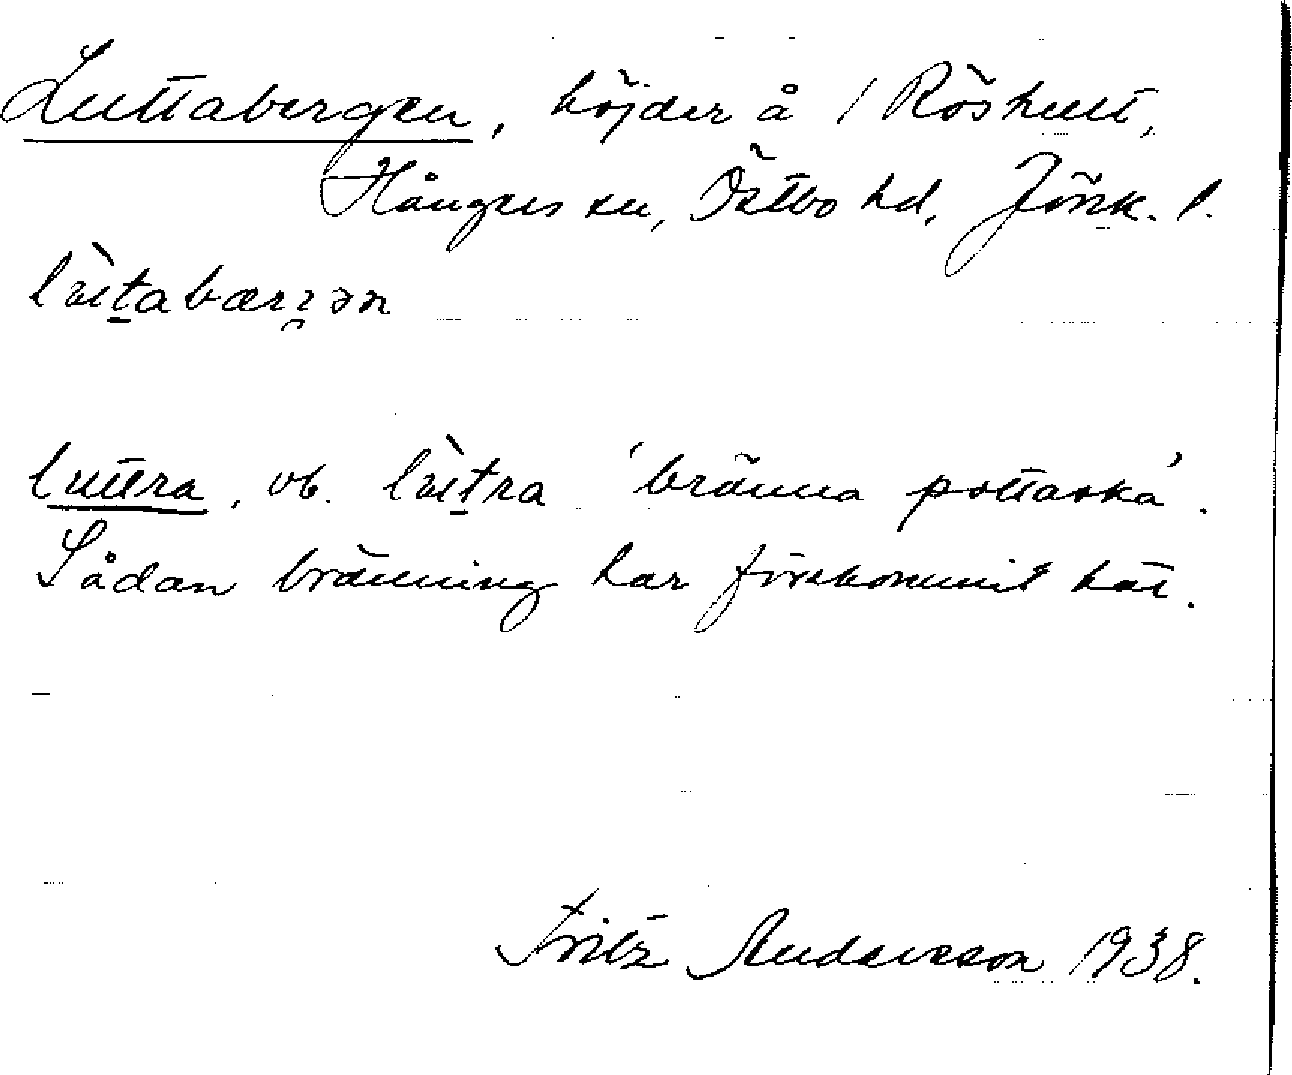 Luttabergen, höjder å / Röshult,
Hångers sn, Östbo hd, Jönk. l.
lùt̠abærɡ̠ən
luttra, vb. lùt̠ra 'bränna pottaska'.
Sådan bränning har förekommit här.
Fritz Andersson 1938.